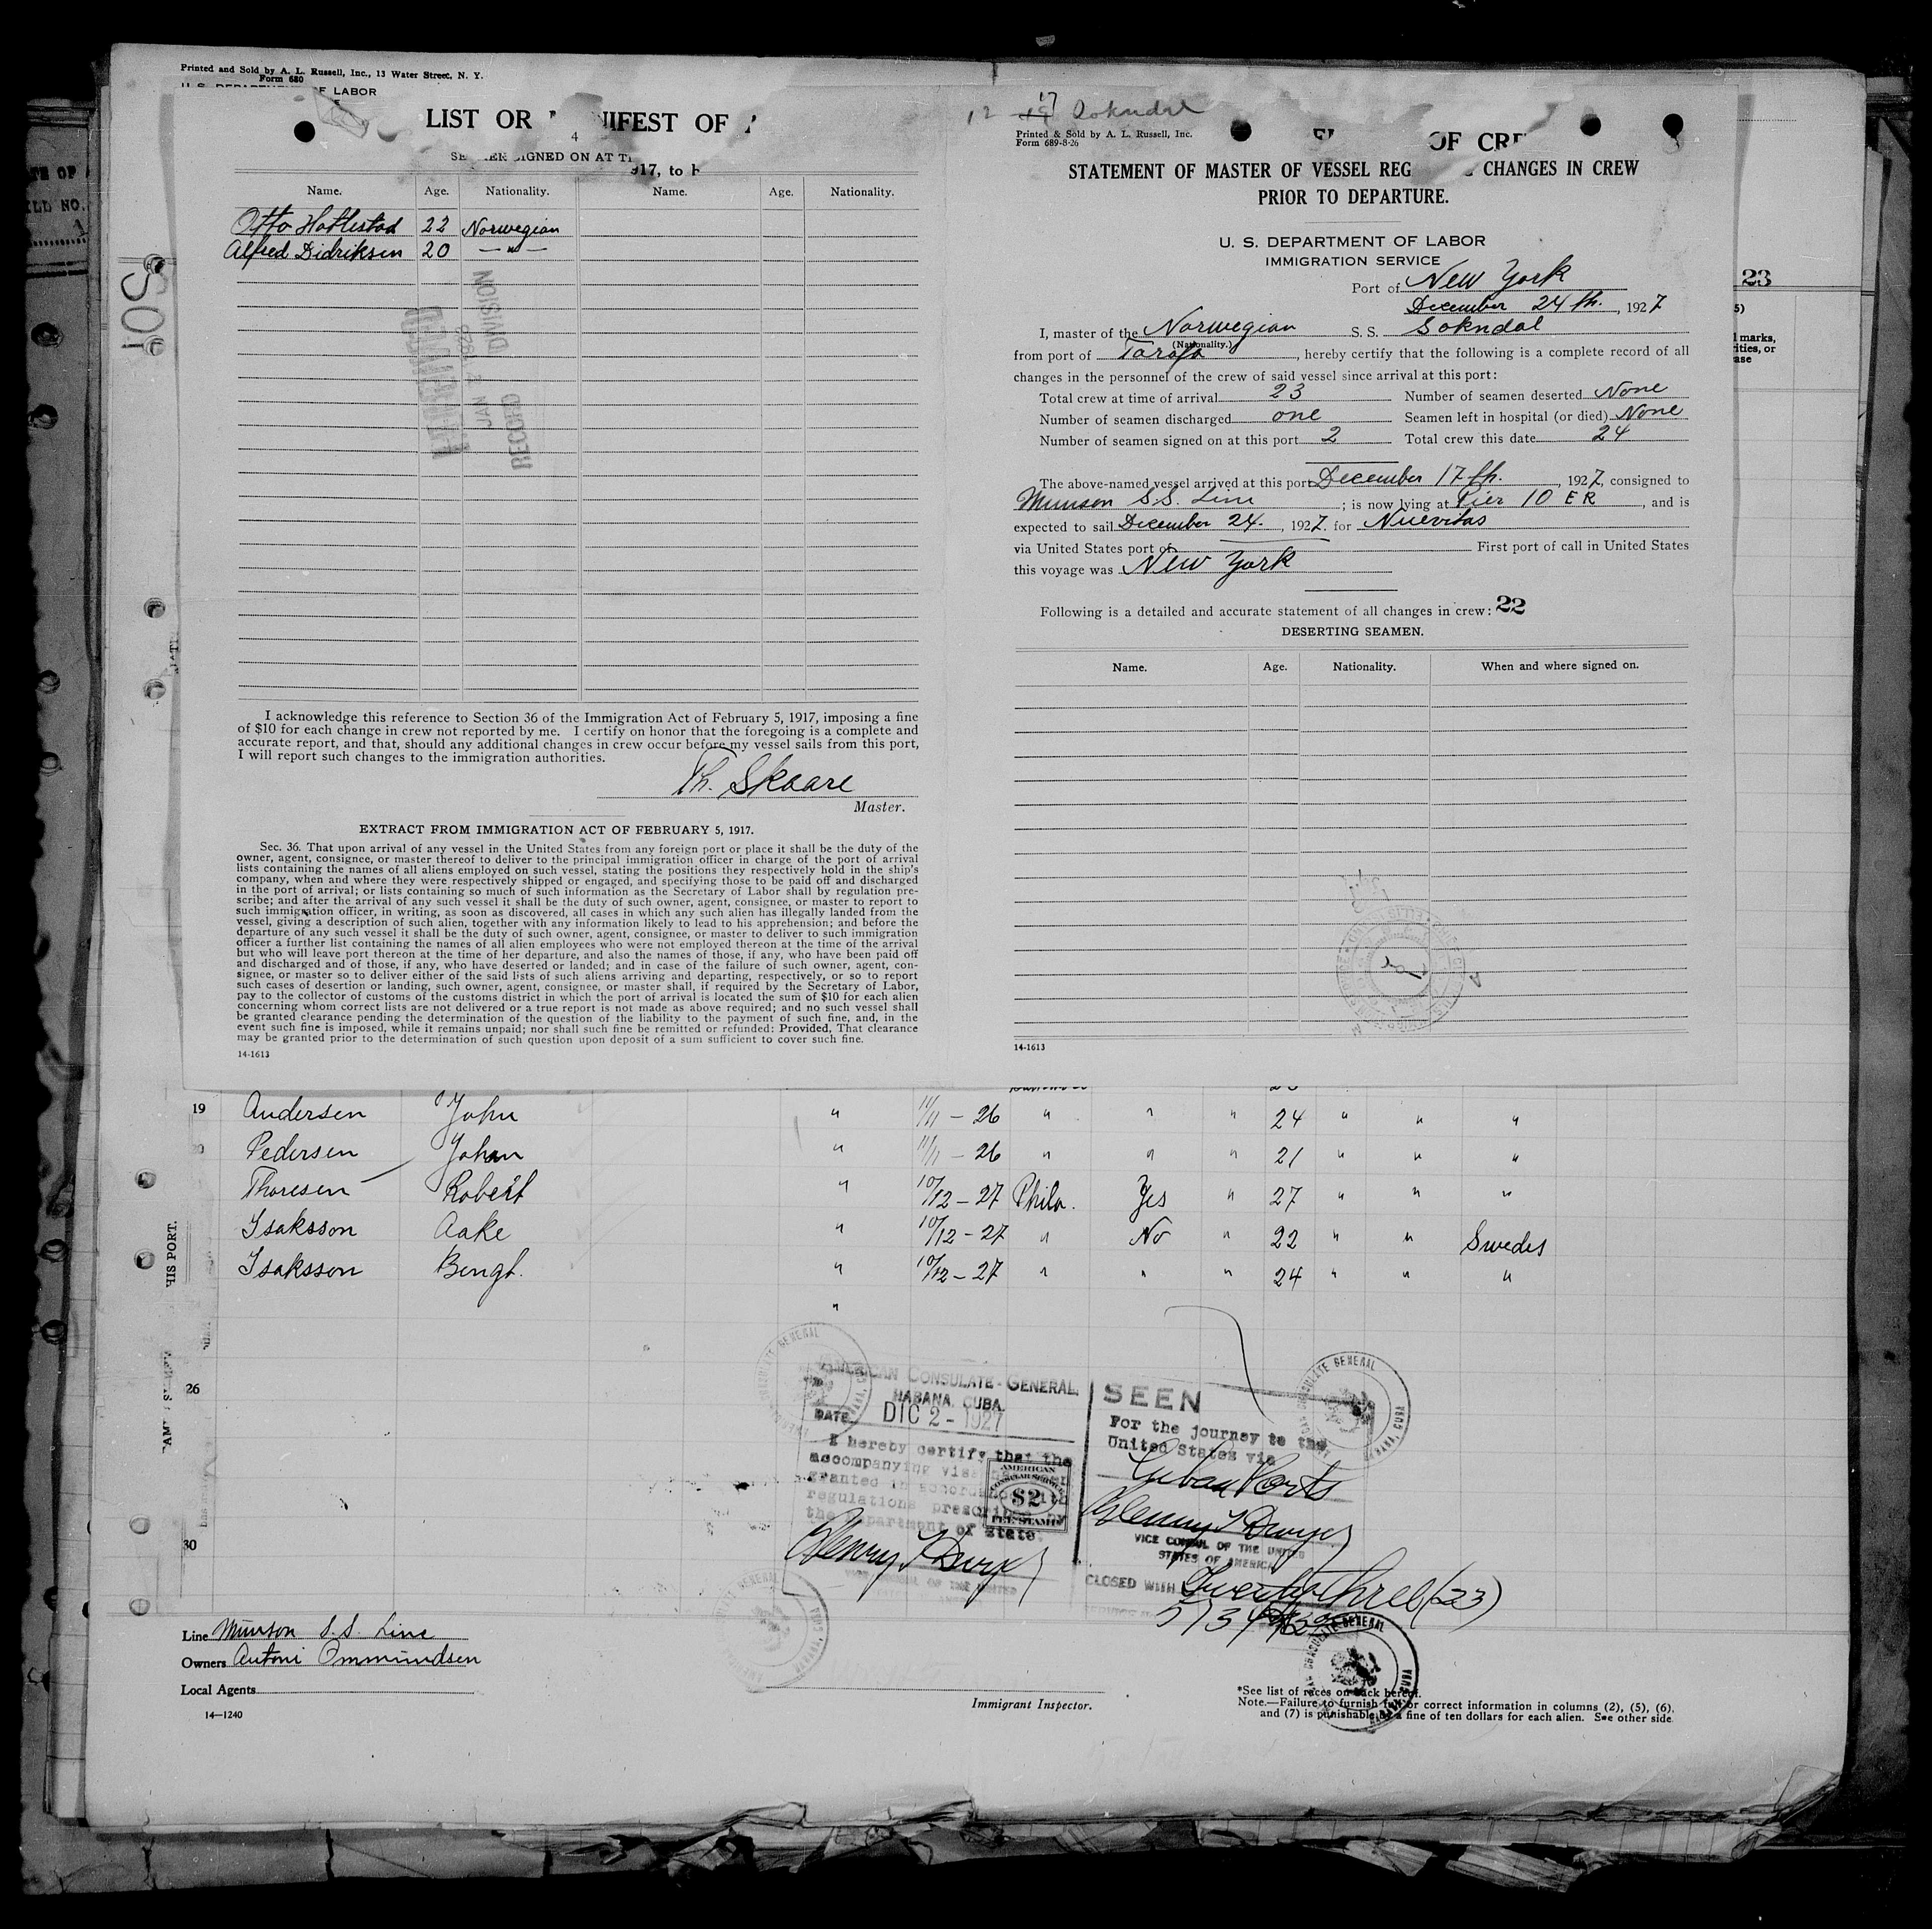 Printed and Sold by A. L. Russell, Inc., 13 Water Street, N. Y.
Form 680
OF LABOR
LIST OR
IFEST OF
4
SIGNED ON AT
917, to
Name. Age. Nationality. Name. Age. Nationality.
Otto Hattestad 22 Norwegian
Alfred Didriksen 20 — " —
JAN 4 1928
RECORD DIVISION
I acknowledge this reference to Section 36 of the Immigration Act of February 5, 1917, imposing a fine
of $10 for each change in crew not reported by me. I certify on honor that the foregoing is a complete and
accurate report, and that, should any additional changes in crew occur before my vessel sails from this port,
I will report such changes to the immigration authorities.
Th. Skaare
Master.
EXTRACT FROM IMMIGRATION ACT OF FEBRUARY 5, 1917.
Sec. 36. That upon arrival of any vessel in the United States from any foreign port or place it shall be the duty of the
owner, agent, consignee, or master thereof to deliver to the principal immigration officer in charge of the port of arrival
lists containing the names of all aliens employed on such vessel, stating the positions they respectively hold in the ship's
company, when and where they were respectively shipped or engaged, and specifying those to be paid off and discharged
in the port of arrival; or lists containing so much of such information as the Secretary of Labor shall by regulation pre-
scribe; and after the arrival of any such vessel it shall be the duty of such owner, agent, consignee, or master to report to
such immigration officer, in writing, as soon as discovered, all cases in which any such alien has illegally landed from the
vessel, giving a description of such alien, together with any information likely to lead to his apprehension; and before the
departure of any such vessel it shall be the duty of such owner, agent, consignee, or master to deliver to such immigration
officer a further list containing the names of all alien employees who were not employed thereon at the time of the arrival
but who will leave port thereon at the time of her departure, and also the names of those, if any, who have been paid off
and discharged and of those, if any, who have deserted or landed; and in case of the failure of such owner, agent, con-
signee, or master so to deliver either of the said lists of such aliens arriving and departing, respectively, or so to report
such cases of desertion or landing, such owner, agent, consignee, or master shall, if required by the Secretary of Labor,
pay to the collector of customs of the customs district in which the port of arrival is located the sum of $10 for each alien
concerning whom correct lists are not delivered or a true report is not made as above required; and no such vessel shall
be granted clearance pending the determination of the question of the liability to the payment of such fine, and, in the
event such fine is imposed, while it remains unpaid; nor shall such fine be remitted or refunded: Provided, That clearance
may be granted prior to the determination of such question upon deposit of a sum sufficient to cover such fine.
14-1613
12 17 Sokndal
Printed & Sold by A. L. Russell, Inc.
Form 689-8-26
OF CRE
STATEMENT OF MASTER OF VESSEL REG CHANGES IN CREW
PRIOR TO DEPARTURE.
U. S. DEPARTMENT OF LABOR
IMMIGRATION SERVICE
Port of New York
December 24th. , 1927
I, master of the Norwegian S. S. Sokndal
(Nationality.)
from port of Tarafa , hereby certify that the following is a complete record of all
changes in the personnel of the crew of said vessel since arrival at this port:
Total crew at time of arrival 23 Number of seamen deserted None
Number of seamen discharged one Seamen left in hospital (or died) None
Number of seamen signed on at this port 2 Total crew this date 24
The above-named vessel arrived at this port December 17th. , 1927, consigned to
Munson S.S. Line ; is now lying at Pier 10 ER , and is
expected to sail December 24. , 1927. for Nuevitas
via United States port of First port of call in United States
this voyage was New York
Following is a detailed and accurate statement of all changes in crew: 22
DESERTING SEAMEN.
Name. Age. Nationality. When and where signed on.
14-1613
23
5)
l marks,
ities, or
ase
19 Andersen John " 11/11 - 26 " " " 24 " " "
Pedersen Johan " 11/11 - 26 " " " 21 " " "
Thoresen Robert " 10/12 - 27 Phila. Yes " 27 " " "
Isaksson Aake " 10/12 - 27 " No " 22 " " Swedes
Isaksson Bengt. " 10/12 - 27 " " " 24 " " "
"
26
30
HIS PORT.
AMERICAN CONSULATE-GENERAL,
HABANA, CUBA.
DATE DIC 2 - 1927
I hereby certify that the
accompanying visa
granted in accordance with
regulations prescribed by
the Department of State.
AMERICAN
CONSULAR SERVICE
$2
FEE STAMP
SEEN
For the journey to the
United States via
Cuban Ports
VICE CONSUL OF THE UNITED
STATES OF AMERICA
CLOSED WITH Twenty three (23)
Line Munson S.S. Line
Owners Antoni Ommundsen
Local Agents
14—1240
Immigrant Inspector.
*See list of races on back hereof.
Note.—Failure to furnish full or correct information in columns (2), (5), (6),
and (7) is punishable by a fine of ten dollars for each alien. See other side